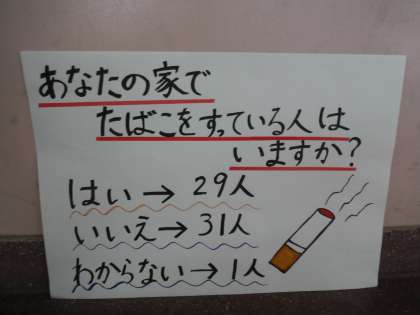 あなたの家で
たばこをすっている人は
いますか?
はい→29人
いいえ→31人
わからない→1人